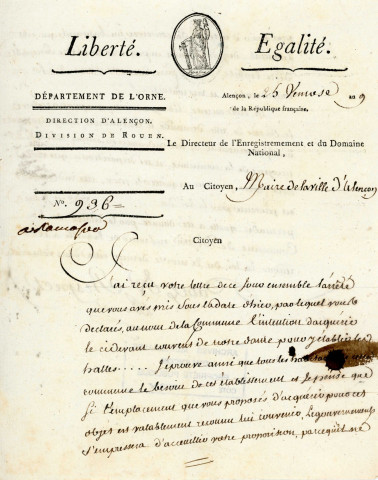 Liberté. Egalité.
DÉPARTEMENT DE L'ORNE.
Alençon, le 25 Ventose an 9
de la République française.
DIRECTION D'ALENÇON.
DIVISION DE ROUEN.
Le Directeur de l'Enregistrement et du Domaine
National,
Au Citoyen, Maire de la ville d'alençon
N°. 936
Citoyen
J'ai reçu votre lettre de ce jour ensemble l'arrêté
que vous avés mis sous la date d'hier, par lequel vous
declarés, au nom de la Commune l'intention d'acquérir
le cidevant couvent de notre dame pour y établir les
halles..... J'éprouve ainsi que tous les
commune le besoin de cet établissement et je pense que
Si l'emplacement que vous proposés d'acquérir pour cet
objet est valablement reconnu lui convenir, Le gouvernement
s'empressera d'accueillir votre proposition, parcequ'il